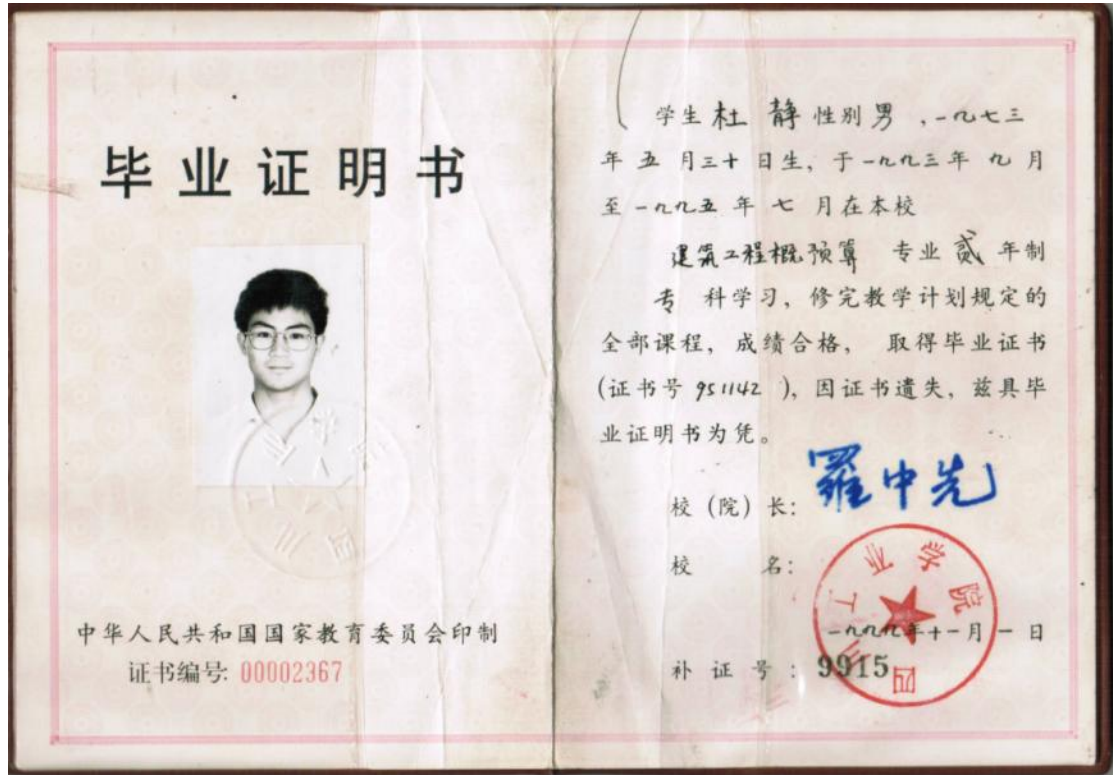 毕业证明书
中华人民共和国国家教育委员会印制
证书编号: 00002367
学生杜 静 性别男 ,一九七三
年 五 月三十 日生, 于一九九三年 九 月
至一九九五 年 七 月在本校
建筑工程概预算 专业 贰 年制
专 科学习, 修完教学计划规定的
全部课程, 成绩合格, 取得毕业证书
(证书号 951142 ), 因证书遗失, 兹具毕
业证明书为凭。
校 (院) 长: 罗中先
校 名:
四川工业学院
一九九九年十一月 一 日
补 证 号 : 9915